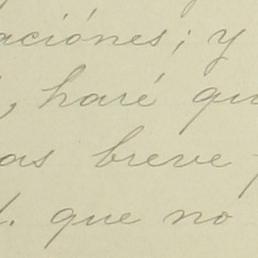 aciónes; y
, haré qu
as breve
. que no